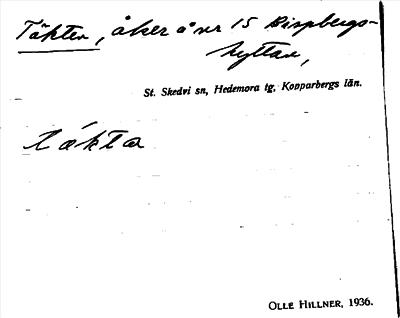 Täkten, åker å nr 15 Bispbergs-
hyttan,
St. Skedvi sn, Hedemora tg, Kopparbergs län.
tǽkta
OLLE HILLNER, 1936.